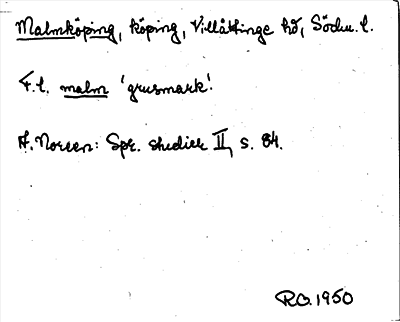 Malmköping, köping, Villåttinge hd, Södm. l.
F.l. malm 'grusmark'.
A. Noreen: Spr. studier II, s. 84.
R.O. 1950